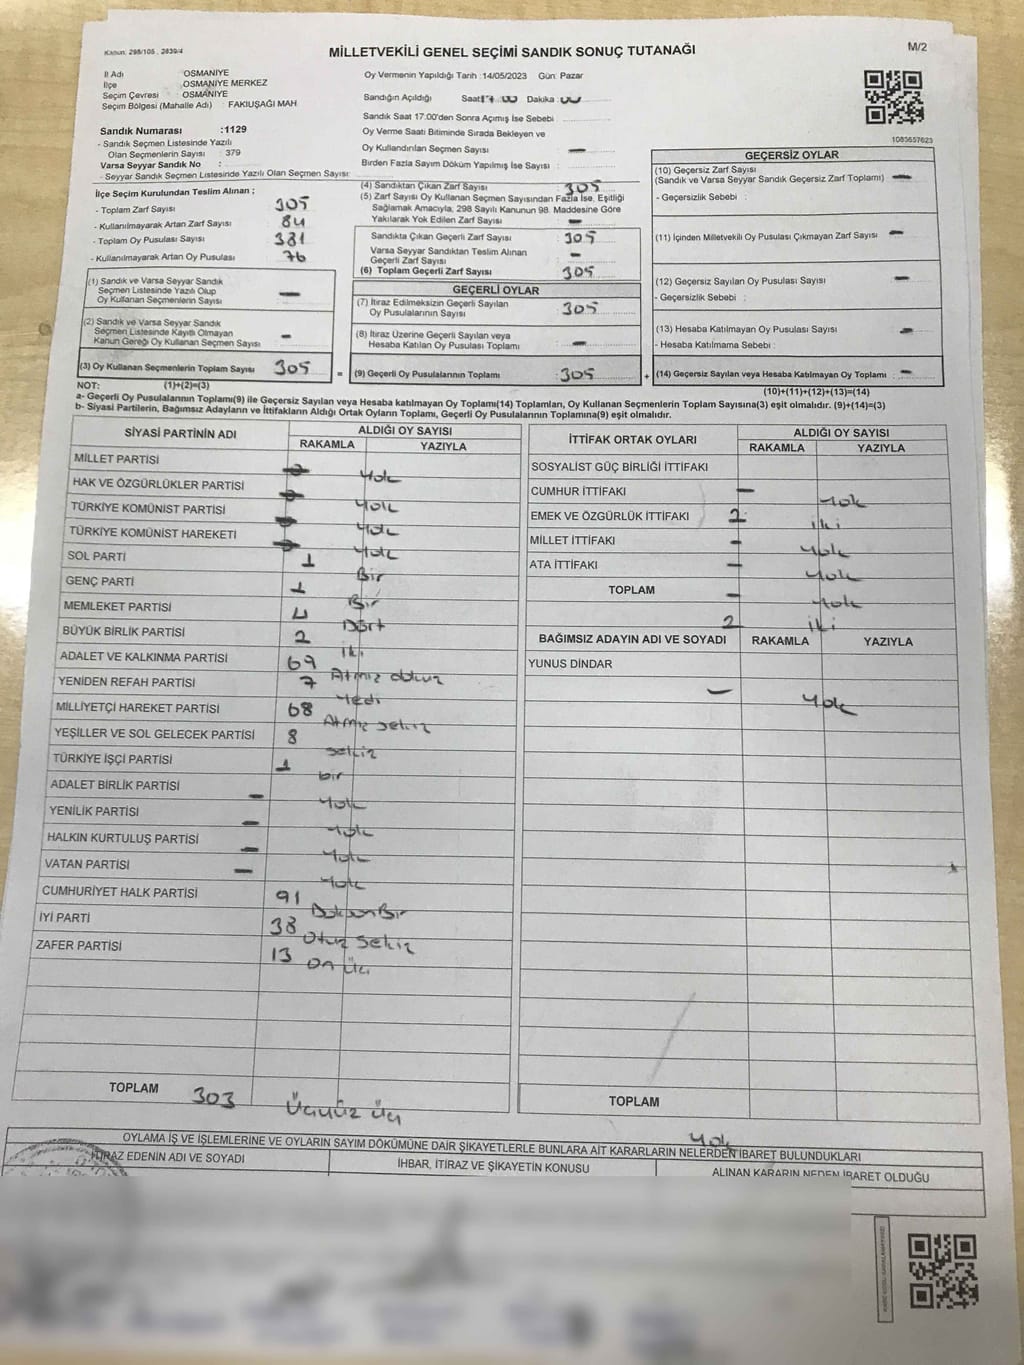 Kanun: 298/105 , 2839/4
MİLLETVEKİLİ GENEL SEÇİMİ SANDIK SONUÇ TUTANAĞI
M/2
İl Adı : OSMANİYE
İlçe : OSMANİYE MERKEZ
Seçim Çevresi : OSMANİYE
Seçim Bölgesi (Mahalle Adı) : FAKIUŞAĞI MAH
Sandık Numarası :1129
- Sandık Seçmen Listesinde Yazılı
Olan Seçmenlerin Sayısı : 379
Varsa Seyyar Sandık No :
- Seyyar Sandık Seçmen Listesinde Yazılı Olan Seçmen Sayısı:
Oy Vermenin Yapıldığı Tarih :14/05/2023 Gün: Pazar
Sandığın Açıldığı Saat 17.00 Dakika : 00
Sandık Saat 17.00'den Sonra Açımış İse Sebebi
Oy Verme Saati Bitiminde Sırada Bekleyen ve
Oy Kullandırılan Seçmen Sayısı —
Birden Fazla Sayım Döküm Yapılmış İse Sayısı :
1083657623
İlçe Seçim Kurulundan Teslim Alınan ;
- Toplam Zarf Sayısı 305
- Kullanılmayarak Artan Zarf Sayısı 84
- Toplam Oy Pusulası Sayısı 381
- Kullanılmayarak Artan Oy Pusulası 76
(1) Sandık ve Varsa Seyyar Sandık
Seçmen Listesinde Yazılı Olup
Oy Kullanan Seçmenlerin Sayısı —
(2) Sandık ve Varsa Seyyar Sandık
Seçmen Listesinde Kayıtlı Olmayan
Kanun Gereği Oy Kullanan Seçmen Sayısı —
(3) Oy Kullanan Seçmenlerin Toplam Sayısı 305 =
(4) Sandıktan Çıkan Zarf Sayısı 305
(5) Zarf Sayısı Oy Kullanan Seçmen Sayısından Fazla İse, Eşitliği
Sağlamak Amacıyla, 298 Sayılı Kanunun 98. Maddesine Göre
Yakılarak Yok Edilen Zarf Sayısı —
Sandıkta Çıkan Geçerli Zarf Sayısı 305
Varsa Seyyar Sandıktan Teslim Alınan
Geçerli Zarf Sayısı —
(6) Toplam Geçerli Zarf Sayısı 305
GEÇERLİ OYLAR
(7) İtiraz Edilmeksizin Geçerli Sayılan
Oy Pusulalarının Sayısı 305
(8) İtiraz Üzerine Geçerli Sayılan veya
Hesaba Katılan Oy Pusulası Toplamı —
(9) Geçerli Oy Pusulalarının Toplamı 305 +
GEÇERSİZ OYLAR
(10) Geçersiz Zarf Sayısı
(Sandık ve Varsa Seyyar Sandık Geçersiz Zarf Toplamı) —
- Geçersizlik Sebebi :
(11) İçinden Milletvekili Oy Pusulası Çıkmayan Zarf Sayısı —
(12) Geçersiz Sayılan Oy Pusulası Sayısı —
- Geçersizlik Sebebi :
(13) Hesaba Katılmayan Oy Pusulası Sayısı —
- Hesaba Katılmama Sebebi :
(14) Geçersiz Sayılan veya Hesaba Katılmayan Oy Toplamı —
NOT: (1)+(2)=(3)
(10)+(11)+(12)+(13)=(14)
a- Geçerli Oy Pusulalarının Toplamı(9) ile Geçersiz Sayılan veya Hesaba katılmayan Oy Toplamı(14) Toplamları, Oy Kullanan Seçmenlerin Toplam Sayısına(3) eşit olmalıdır. (9)+(14)=(3)
b- Siyasi Partilerin, Bağımsız Adayların ve İttifakların Aldığı Ortak Oyların Toplamı, Geçerli Oy Pusulalarının Toplamına(9) eşit olmalıdır.
SİYASİ PARTİNİN ADI ALDIĞI OY SAYISI
RAKAMLA YAZIYLA
MİLLET PARTİSİ — Yok
HAK VE ÖZGÜRLÜKLER PARTİSİ — Yok
TÜRKİYE KOMÜNİST PARTİSİ — Yok
TÜRKİYE KOMÜNİST HAREKETİ — Yok
SOL PARTİ 1 Bir
GENÇ PARTİ 1 Bir
MEMLEKET PARTİSİ 4 Dört
BÜYÜK BİRLİK PARTİSİ 2 İki
ADALET VE KALKINMA PARTİSİ 69 Atmız dokuz
YENİDEN REFAH PARTİSİ 7 Yedi
MİLLİYETÇİ HAREKET PARTİSİ 68 Atmız sekiz
YEŞİLLER VE SOL GELECEK PARTİSİ 8 sekiz
TÜRKİYE İŞÇİ PARTİSİ 1 bir
ADALET BİRLİK PARTİSİ — Yok
YENİLİK PARTİSİ — Yok
HALKIN KURTULUŞ PARTİSİ — Yok
VATAN PARTİSİ — Yok
CUMHURİYET HALK PARTİSİ 91 Doksan Bir
İYİ PARTİ 38 Otuz Sekiz
ZAFER PARTİSİ 13 On Üç
TOPLAM 303 Üçyüz üç
İTTİFAK ORTAK OYLARI ALDIĞI OY SAYISI
RAKAMLA YAZIYLA
SOSYALİST GÜÇ BİRLİĞİ İTTİFAKI — Yok
CUMHUR İTTİFAKI 2 İki
EMEK VE ÖZGÜRLÜK İTTİFAKI — Yok
MİLLET İTTİFAKI — Yok
ATA İTTİFAKI — Yok
TOPLAM 2 İki
BAĞIMSIZ ADAYIN ADI VE SOYADI RAKAMLA YAZIYLA
YUNUS DİNDAR — Yok
TOPLAM
Yok
OYLAMA İŞ VE İŞLEMLERİNE VE OYLARIN SAYIM DÖKÜMÜNE DAİR ŞİKAYETLERLE BUNLARA AİT KARARLARIN NELERDEN İBARET BULUNDUKLARI
İTİRAZ EDENİN ADI VE SOYADI
İHBAR, İTİRAZ VE ŞİKAYETİN KONUSU
ALINAN KARARIN NEDEN İBARET OLDUĞU